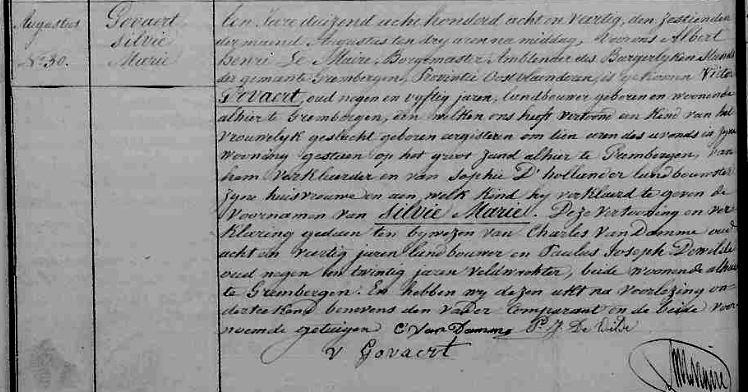 Augustus
N° 30.
Govaert
Silvie
Marie
Ten Jare duizend acht honderd acht en veertig, den zestienden
der maend Augustus ten dry uren na middag, Voor ons Albert
Henri Le Maire, Borgemaster, Amblenaer des Burgerlyken Stands
der gemante Grembergen, Provintie Oostvlaenderen, is gekomen Victor
Govaert, oud negen en vyftig jaren, landbouwer geboren en woonende
alhier te Grembergen, den welken ons heeft vertoond een Kind van het
vrouwelyk geslacht geboren eergisteren om tien uren des avonds in zyne
wooning gestaen op het groot Zand alhier te Grembergen, van
hem Verklaerder en van Sophie D'hollander landbouwster
zyne huisvrouwe en aen welk Kind hy verklaerd te geven de
Voornamen van Silvie Marie. Deze vertooning en ver
klaring gedaen ten bywezen van Charles Van Damme oud
acht en veertig jaren landbouwer en Paulus Joseph Dewilde
oud negen en twintig jaren Veldwerker, beide woonende alhier
te Grembergen. En hebben wy dezen akt na Voorlezing on
derteekend benevens den vader Comparant en de beide voor
noemde getuigen C Van Damme P. J. De Wilde
V Govaert